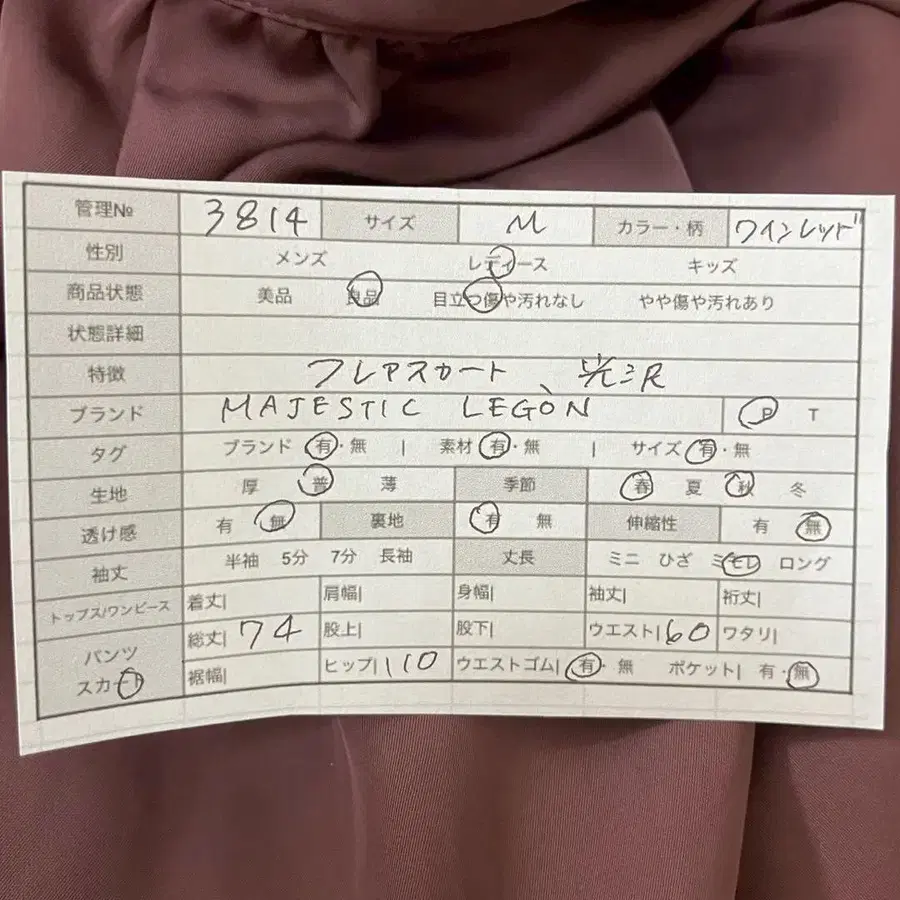 管理№ 3814 サイズ M カラー・柄 ワインレッド
性別 メンズ レディース キッズ
商品状態 美品 良品 目立つ傷や汚れなし やや傷や汚れあり
状態詳細
特徴 フレアスカート、光沢
ブランド MAJESTIC LEGON P T
タグ ブランド 有・無 | 素材 有・無 | サイズ 有・無
生地 厚 普 薄 季節 春 夏 秋 冬
透け感 有 無 裏地 有 無 伸縮性 有 無
袖丈 半袖 5分 7分 長袖 丈長 ミニ ひざ ミモレ ロング
トップス/ワンピース 着丈| 肩幅| 身幅| 袖丈| 裄丈|
パンツ 総丈| 74 股上| 股下| ウエスト| 60 ワタリ|
スカート 裾幅| ヒップ| 110 ウエストゴム| 有・無 ポケット| 有・無